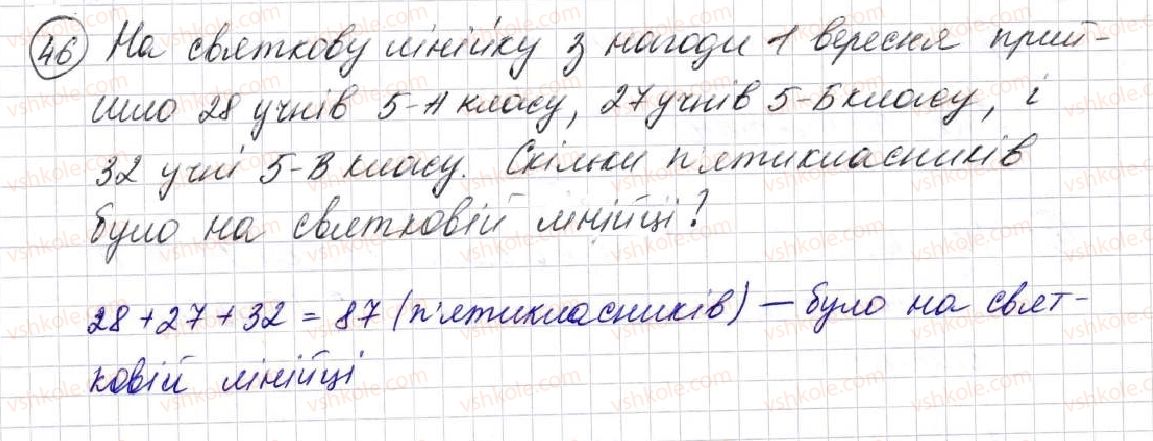 46 На святкову лінійку з нагоди 1 вересня прий-
шло 28 учнів 5-А класу, 27 учнів 5-Б класу, і
32 учні 5-В класу. Скільки п'ятикласників
було на святковій лінійці?
28 + 27 + 32 = 87 (п'ятикласників) — було на свят-
ковій лінійці